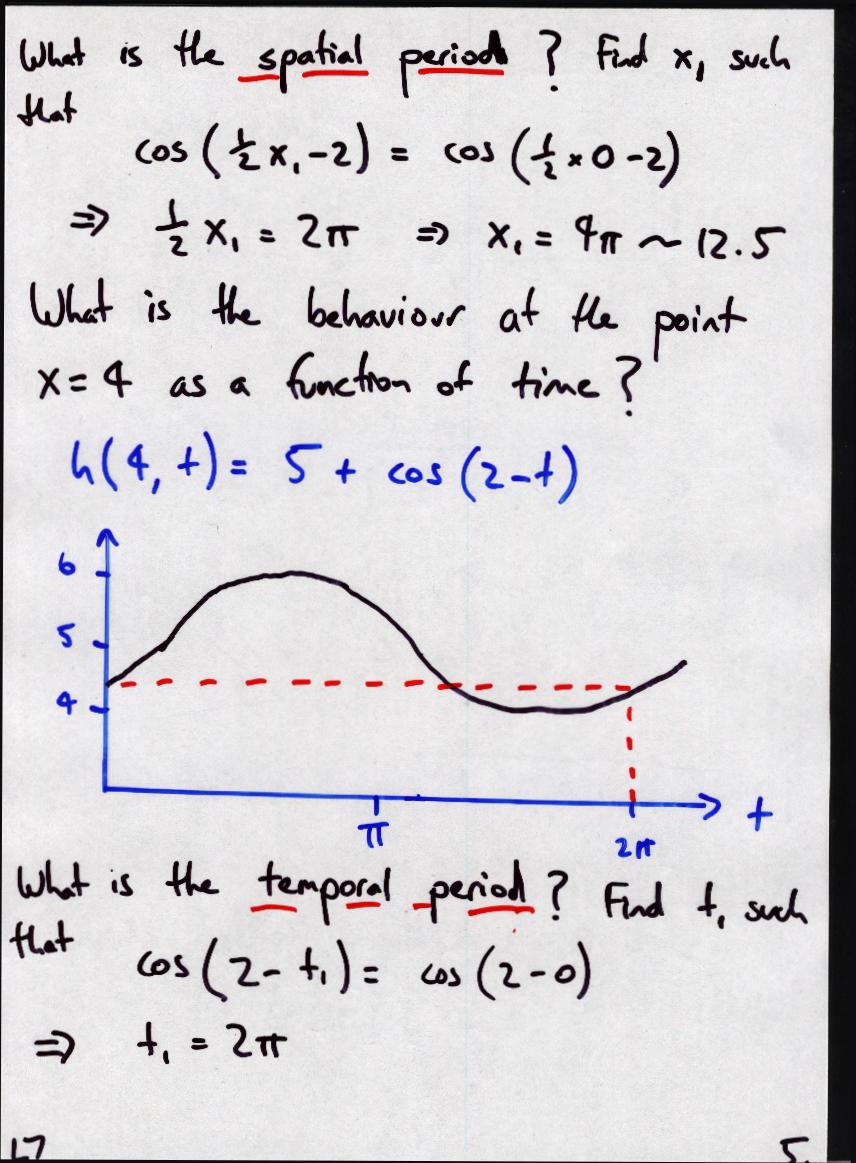 What is the spatial period? Find x₁ such
that
cos(½x₁-2) = cos(½×0-2)
⇒ ½x₁ = 2π ⇒ x₁ = 4π ~ 12.5
What is the behaviour at the point
x=4 as a function of time?
h(4,t) = 5 + cos(2-t)
6
5
4
π
2π
t
What is the temporal period? Find t₁ such
that
cos(2-t₁) = cos(2-0)
⇒ t₁ = 2π
5